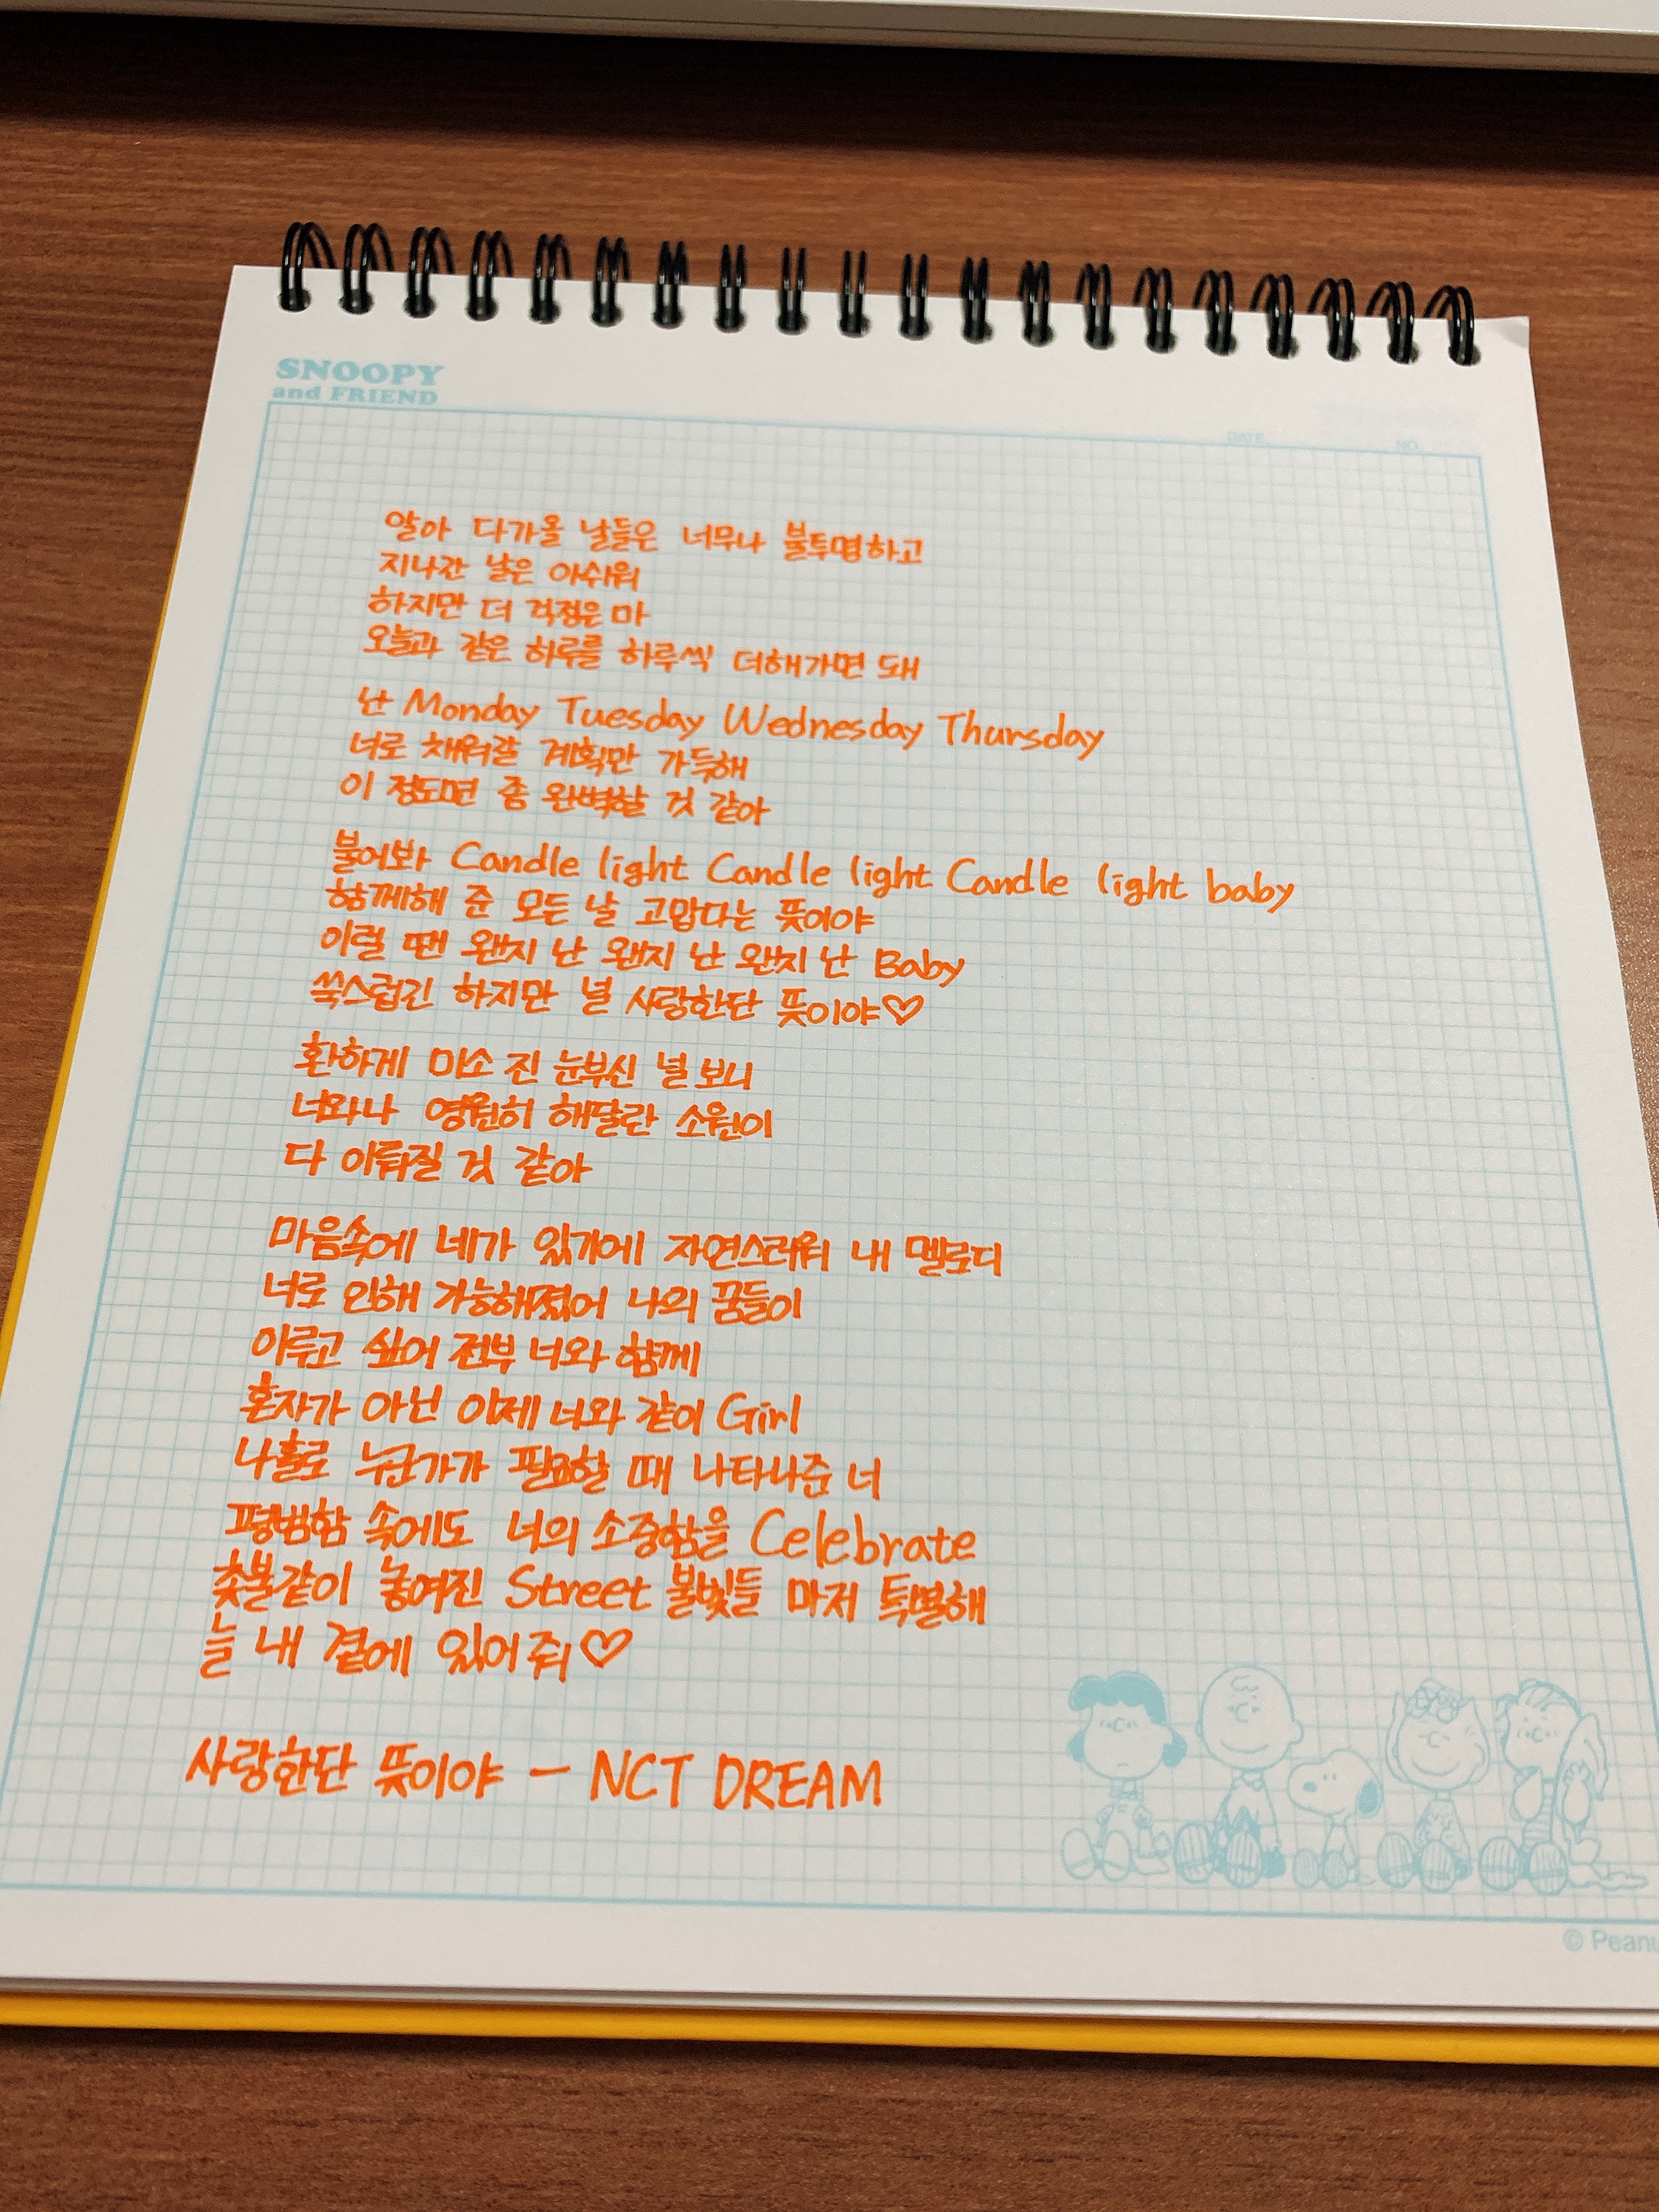 SNOOPY
and FRIEND
DATE. NO.
알아 다가올 날들은 너무나 불투명하고
지나간 날은 아쉬워
하지만 더 걱정은 마
오늘과 같은 하루를 하루씩 더해가면 돼
난 Monday Tuesday Wednesday Thursday
너로 채워갈 계획만 가득해
이 정도면 좀 완벽할 것 같아
불어봐 Candle light Candle light Candle light baby
함께해 준 모든 날 고맙다는 뜻이야
이럴 땐 왠지 난 왠지 난 왠지 난 Baby
쑥스럽긴 하지만 널 사랑한단 뜻이야♡
환하게 미소 진 눈부신 널 보니
너와나 영원히 해달란 소원이
다 이뤄질 것 같아
마음속에 네가 있기에 자연스러워 내 멜로디
너로 인해 가능해졌어 나의 꿈들이
이루고 싶어 전부 너와 함께
혼자가 아닌 이제 너와 같이 Girl
나홀로 누군가가 필요할 때 나타나준 너
평범함 속에도 너의 소중함을 Celebrate
촛불같이 놓여진 Street 불빛들 마저 특별해
늘 내 곁에 있어 줘♡
사랑한단 뜻이야 - NCT DREAM
© Peanu